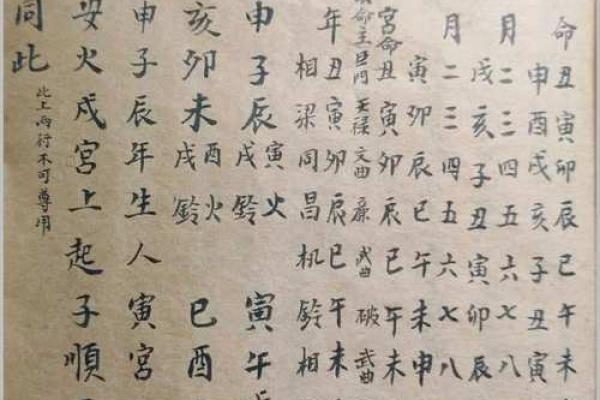 命丑寅卯辰巳午未
申酉戌亥子丑寅
月二三四五六七八
戌亥子丑寅卯辰
月二三四五六七八
寅卯辰巳午未申
宮命丑寅卯辰巳午未
命主巨門 天祿 文曲 廉 武曲 破 武曲
年丑寅卯辰巳午未
相梁同昌机鈴相
申子辰 寅火 戌鈴 寅午
亥卯未 酉火 戌鈴 巳酉
申子辰年生人寅宮
安火戍宮上起子順
同此 此上兩行不可尊用